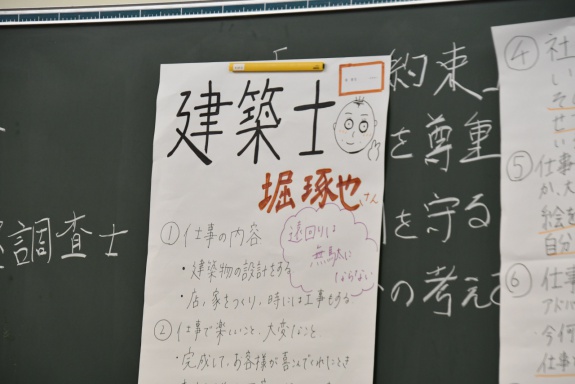 建築士
堀琢也さん
① 仕事の内容
・建築物の設計をする
・店、家をつくり、時には工事もする
遠回りは
無駄に
ならない
② 仕事で楽しいこと、大変なこと
・完成して、お客様が喜んでくれたとき
約束
を尊重
を守る
の考え
調査士
④ 社
い
せ
⑤ 仕事
か、大
絵を
自分
⑥ 仕事
アドバ
今何
仕事